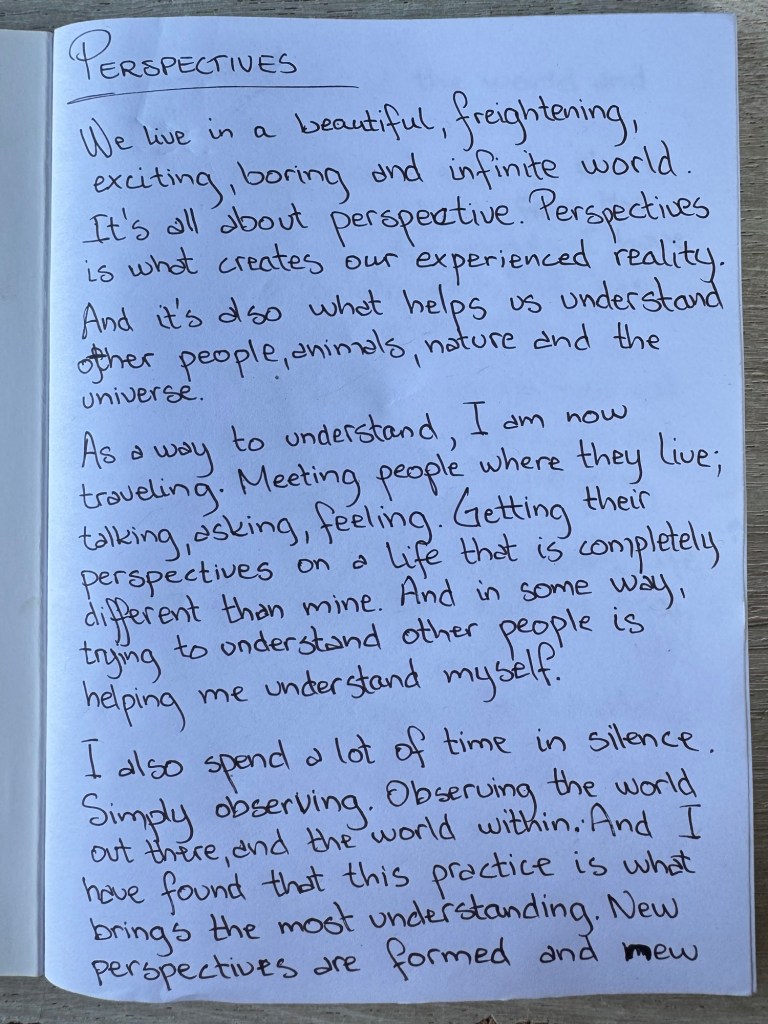 PERSPECTIVES
We live in a beautiful, freightening,
exciting, boring and infinite world.
It's all about perspective. Perspectives
is what creates our experienced reality.
And it's also what helps us understand
other people, animals, nature and the
universe.
As a way to understand, I am now
traveling. Meeting people where they live;
talking, asking, feeling. Getting their
perspectives on a life that is completely
different than mine. And in some way,
trying to understand other people is
helping me understand myself.
I also spend a lot of time in silence.
Simply observing. Observing the world
out there, and the world within. And I
have found that this practice is what
brings the most understanding. New
perspectives are formed and new